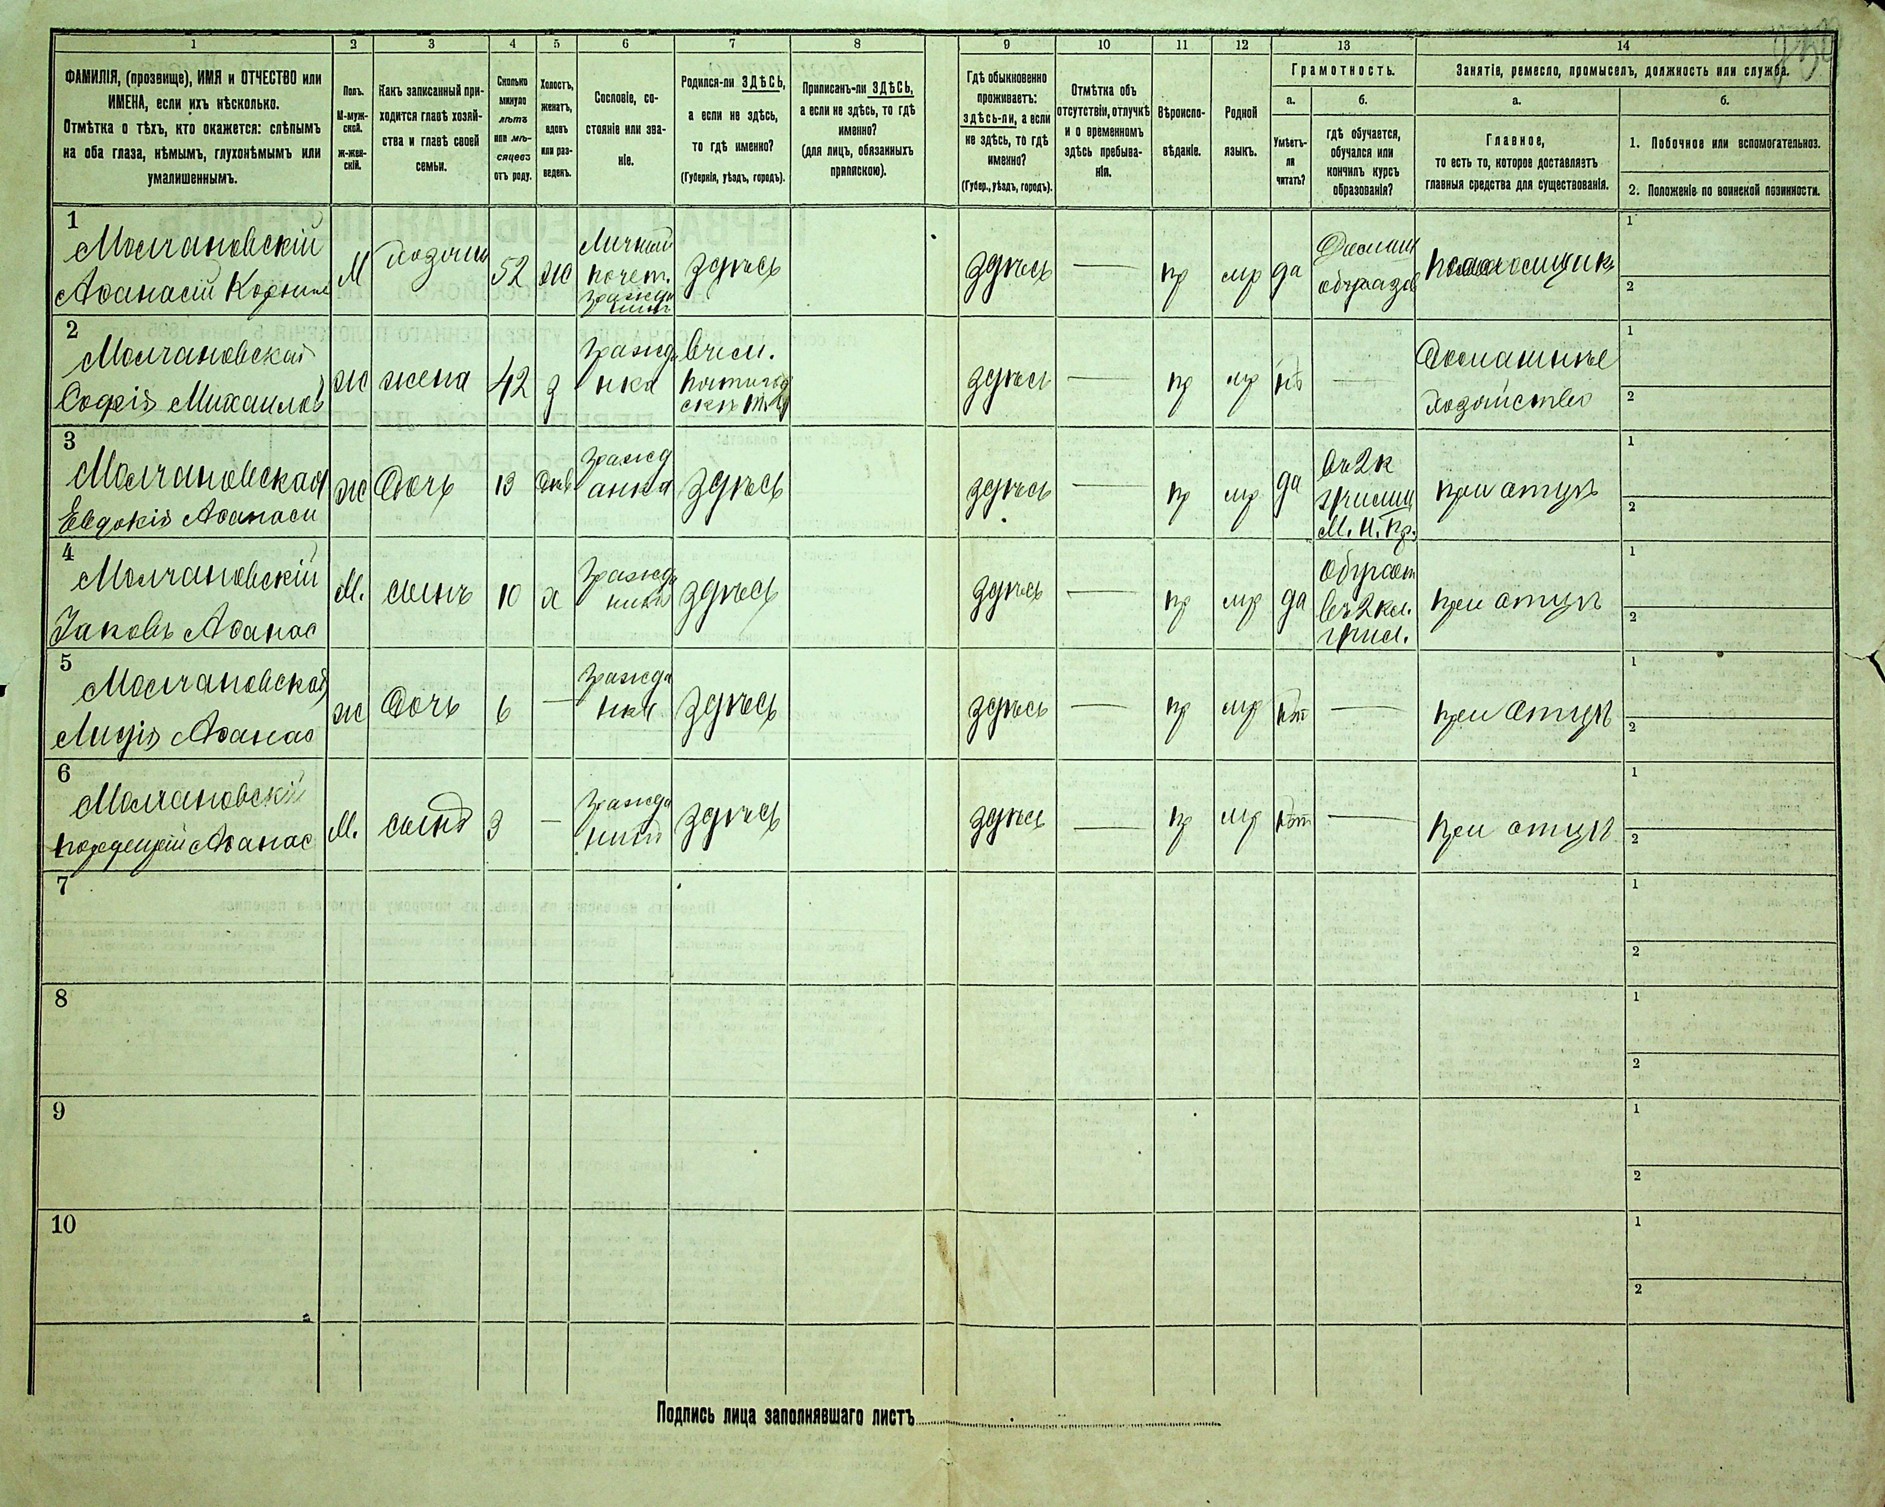 1 2 3 4 5 6 7 8 9 10 11 12 13 14
ФАМИЛІЯ, (прозвище), ИМЯ и ОТЧЕСТВО или
ИМЕНА, если ихъ нѣсколько.
Отмѣтка о тѣхъ, кто окажется: слѣпымъ
на оба глаза, нѣмымъ, глухонѣмымъ или
умалишеннымъ.
Полъ.
М-муж-
ской.
ж-жен-
скій.
Какъ записанный при-
ходится главѣ хозяй-
ства и главѣ своей
семьи.
Сколько
минуло
лѣтъ
или мѣ-
сяцевъ
отъ роду.
Холостъ,
женатъ,
вдовъ
или раз-
веденъ.
Сословіе, со-
стояніе или зва-
ніе.
Родился-ли ЗДѢСЬ,
а если не здѣсь,
то гдѣ именно?
(Губернія, уѣздъ, городъ).
Приписанъ-ли ЗДѢСЬ,
а если не здѣсь, то гдѣ
именно?
(для лицъ, обязанныхъ
припискою).
Гдѣ обыкновенно
проживаетъ:
здѣсь-ли, а если
не здѣсь, то гдѣ
именно?
(Губер., уѣздъ, городъ).
Отмѣтка объ
отсутствіи, отлучкѣ
и о временномъ
здѣсь пребыва-
ніи.
Вѣроиспо-
вѣданіе.
Родной
языкъ.
Грамотность.
а.
Умѣетъ-
ли
читать?
б.
гдѣ обучается,
обучался или
кончилъ курсъ
образованія?
Занятіе, ремесло, промыселъ, должность или служба.
а.
Главное,
то есть то, которое доставляетъ
главныя средства для существованія.
б.
1. Побочное или вспомогательноз.
2. Положеніе по воинской повинности.
1
Молчановскій
Аѳанасій Корнил
М
хозяинъ
52
ж
Личный
почет.
гражда
нинъ
здѣсь
здѣсь
—
пр
мр
да
Домаш
образов
псаломщикъ
1
2
2
Молчановская
Софія Михаилов
ж
жена
42
з
гражда
нка
здѣсь
—
пр
мр
нѣ
—
Домашнѣе
хозяйство
1
2
3
Молчановская
Евдокія Аѳанаси
ж
Дочь
13
дѣв
гражд
анка
здѣсь
здѣсь
—
пр
мр
да
въ 2 к
училищ
М. Н. Пр.
при отцѣ
1
2
4
Молчановскій
Іаковъ Аѳанас
М.
сынъ
10
х
гражда
нинъ
здѣсь
здѣсь
—
пр
мр
да
обучает
въ 2 кл.
учил.
при отцѣ
1
2
5
Молчановская
Лидія Аѳанас
ж
Дочь
6
—
гражда
нка
здѣсь
здѣсь
—
пр
мр
нѣт
—
при отцѣ
1
2
6
Молчановскій
Аѳанас
М.
сынъ
3
—
гражда
нинъ
здѣсь
здѣсь
—
пр
мр
нѣт
—
при отцѣ
1
2
7
1
2
8
1
2
9
1
2
10
1
2
Подпись лица заполнявшаго листъ